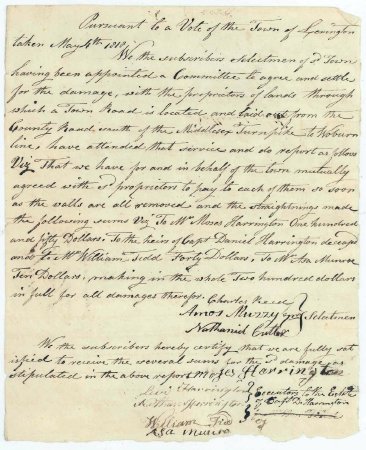 Pursuant to a Vote of the Town of Lexington
taken May 4th 1810,
We the subscribers selectmen of sd Town
having been appointed a Committee to agree and settle
for the damage, with the proprietors of lands through
which a Town Road is located and laid out from the
County Road south of the Middlesex Turnpike to Woburn
line, have attended that service and do report as follows
Viz That we have for and in behalf of the town mutually
agreed with sd proprietors to pay to each of them so soon
as the walls are all removed and the straightnings made
the following sums Viz To Mr Moses Harrington One hundred
and fifty Dollars; To the heirs of Capt Daniel Harrington decead
and to Mr William Tidd Forty Dollars; To Mr Asa Munroe
Ten Dollars; making in the whole Two hundred dollars
in full for all damages therefor.
Charles Reed
Amos Muzzy
Nathaniel Cutler
Selectmen
We the subscribers hereby certify that we are fully sat
isfied to receive the several sums for the sd damage as
stipulated in the above report Moses Harrington
Levi Harrington
Nathan Harrington
Executors to the Estate
of Capt D. Harrington
William Tidd
Asa Munroe